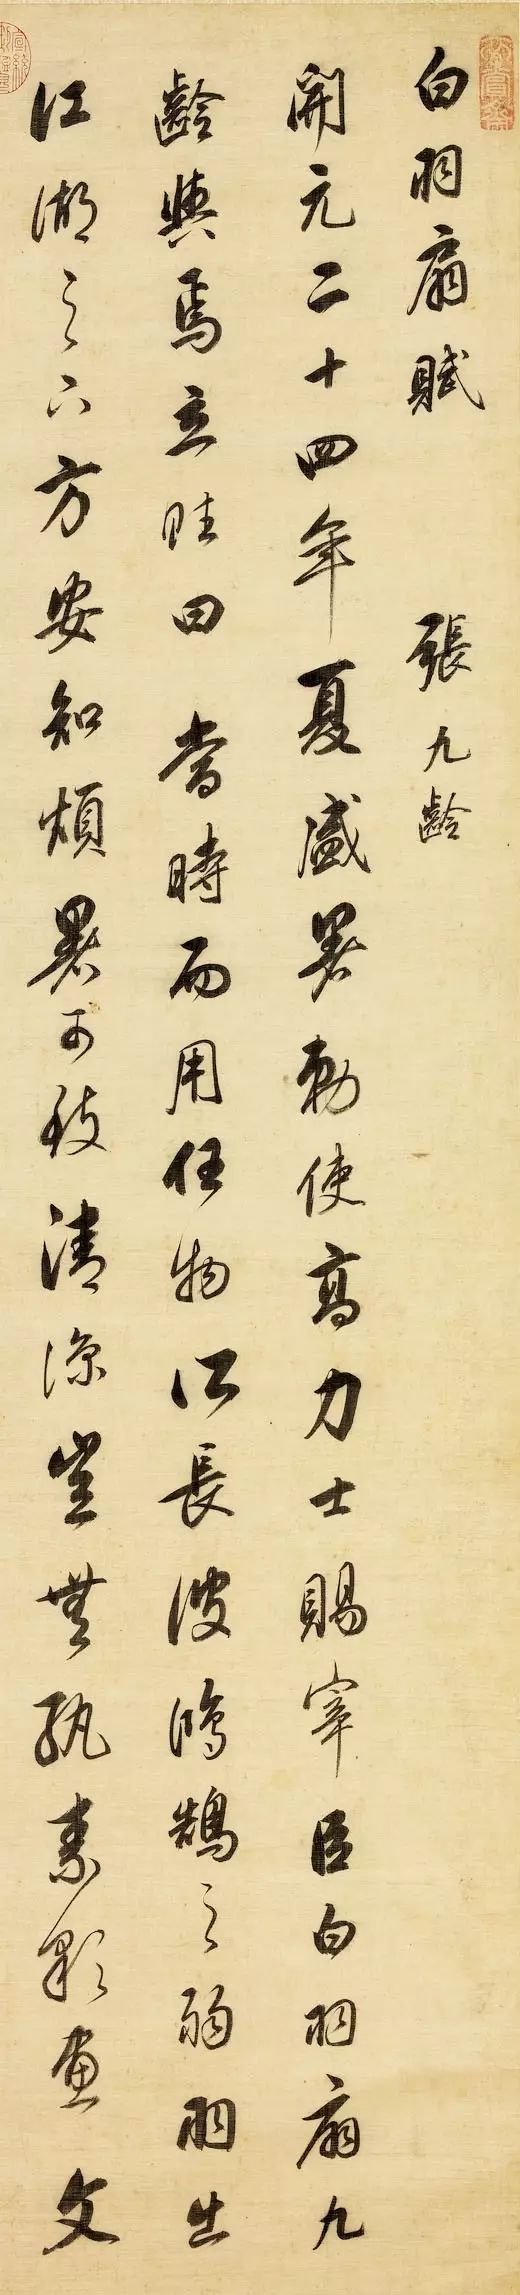 白羽扇賦 張九齡
開元二十四年夏盛暑勅使高力士賜宰臣白羽扇九
齡與焉立曰 當時而用任物所長彼鴻鵠之弱羽出
江湖之下方安知煩暑可致清涼豈無紈素彩畫文